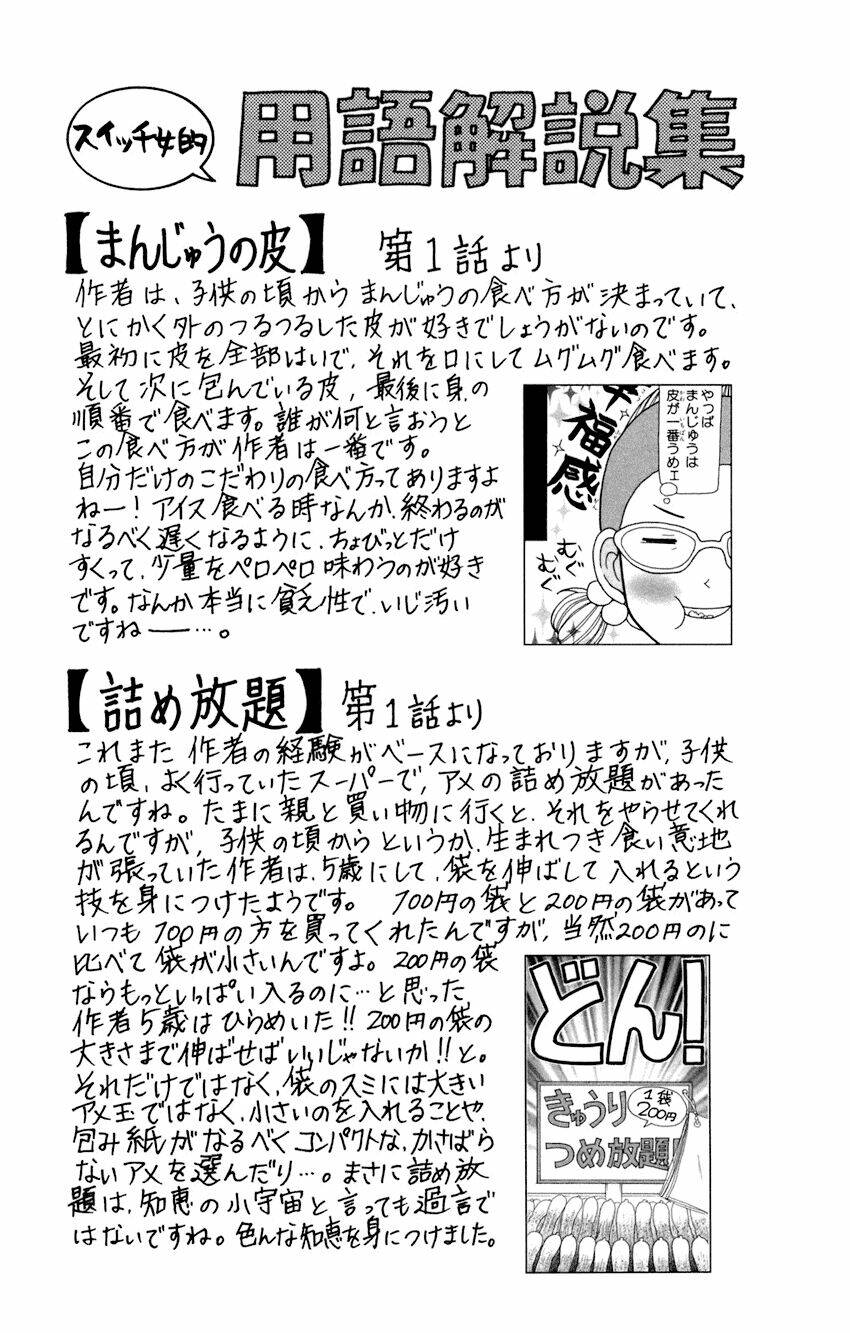 スイッチ女的
用語解説集
【まんじゅうの皮】 第1話より
作者は、子供の頃からまんじゅうの食べ方が決まっていて、
とにかく外のつるつるした皮が好きでしょうがないのです。
最初に皮を全部はいで、それを口にしてムグムグ食べます。
そして次に包んでいる皮、最後に身の
順番で食べます。誰が何と言おうと
この食べ方が作者は一番です。
自分だけのこだわりの食べ方ってありますよ
ねー！アイス食べる時なんか、終わるのが
なるべく遅くなるように、ちょびっとだけ
すくって、少量をペロペロ味わうのが好き
です。なんか本当に貧乏性で、いじ汚い
ですねー―…。
やっぱ
まんじゅうは
皮が一番うめェ
いちばん
福感
むぐ
むぐ
【詰め放題】 第1話より
これまた作者の経験がベースになっておりますが、子供
の頃、よく行っていたスーパーで、アメの詰め放題があった
んですね。たまに親と買い物に行くと、それをやらせてくれ
るんですが、子供の頃からというか、生まれつき食い意地
が張っていた作者は、5歳にして、袋を伸ばして入れるという
技を身につけたようです。 100円の袋と200円の袋があって
いつも100円の方を買ってくれたんですが、当然200円のに
比べて袋が小さいんですよ。200円の袋
ならもっといっぱい入るのに…と思った
作者5歳はひらめいた!!200円の袋の
大きさまで伸ばせばいいじゃないか!!と。
それだけではなく、袋のスミには大きい
アメ玉ではなく、小さいのを入れることや、
包み紙がなるべくコンパクトな、かさばら
ないアメを選んだり…。まさに詰め放
題は、知恵の小宇宙と言っても過言で
はないですね。色んな知恵を身につけました。
どん！
きゅうり
1袋
200円
つめ放題！